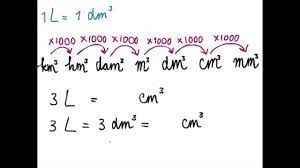 1 L = 1 dm³
x1000 x1000 x1000 x1000 x1000 x1000
km³ hm³ dam³ m³ dm³ cm³ mm³
3 L = cm³
3 L = 3 dm³ = cm³